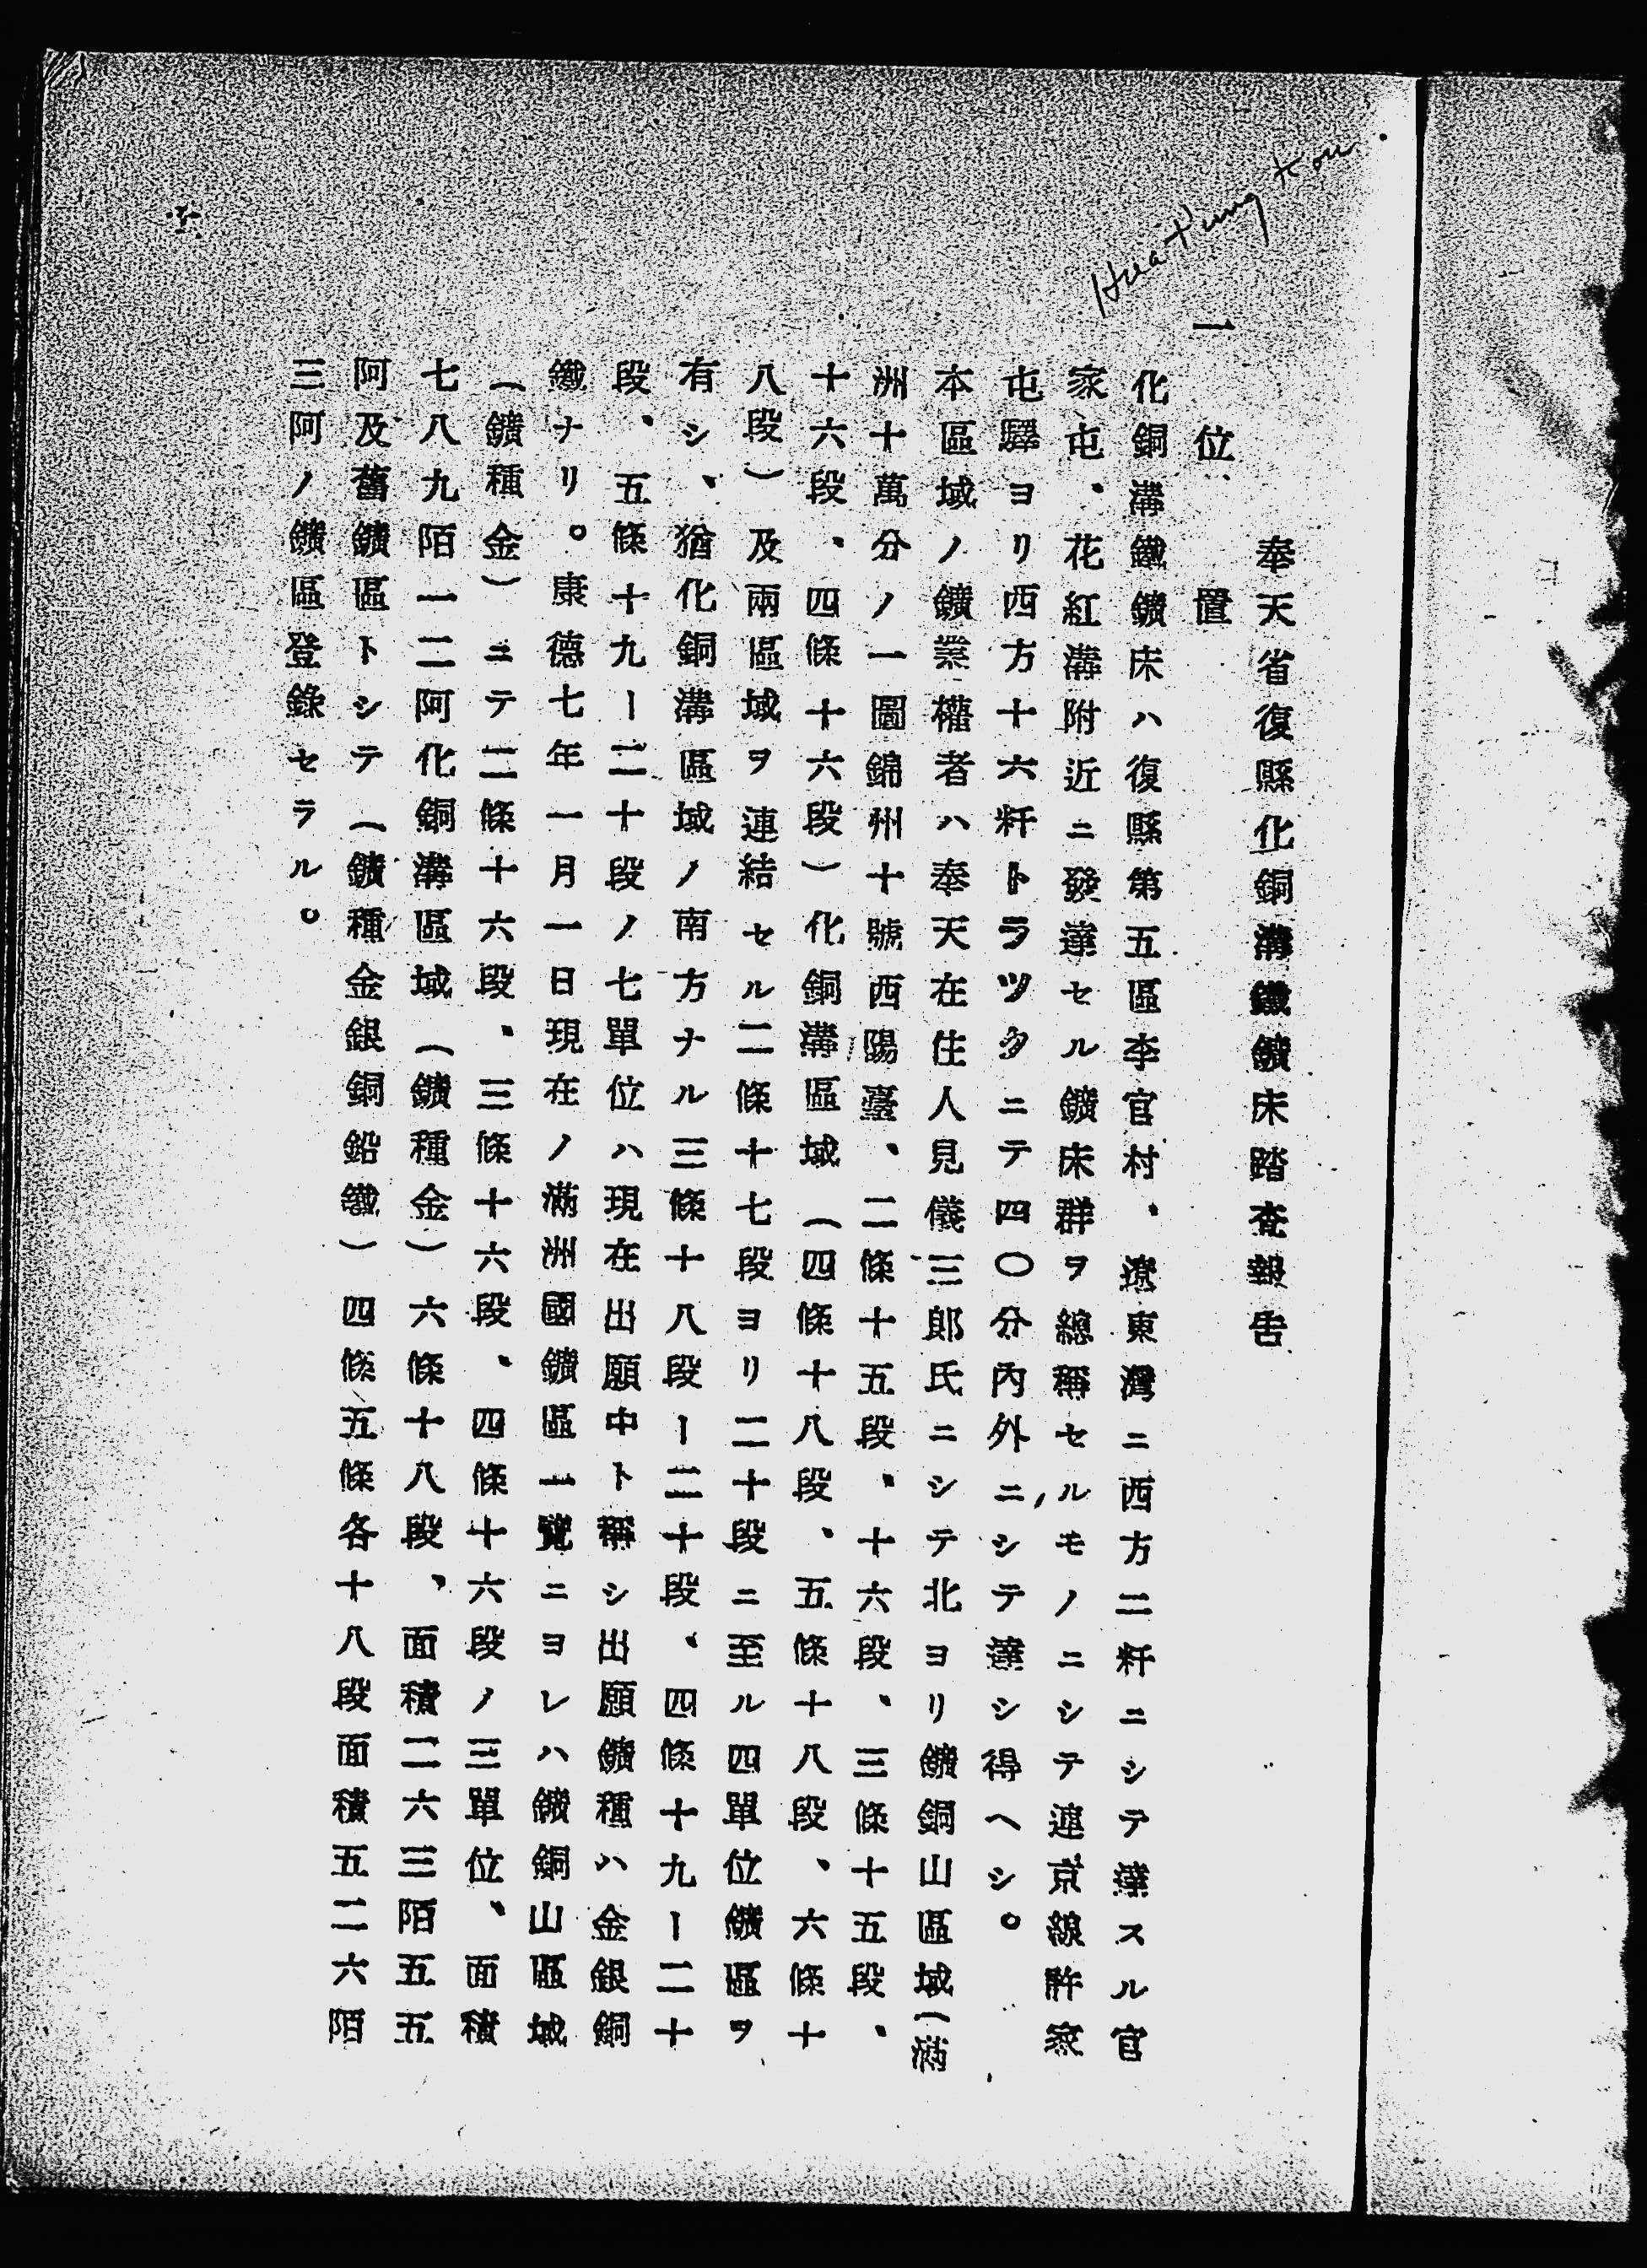 Hua t'ung kou
奉天省復縣化銅溝鐵鑛床踏査報告
一 位 置
化銅溝鐵鑛床ハ復縣第五區李官村、遼東灣ニ西方二粁ニシテ達スル官
家屯、花紅溝附近ニ發達セル鑛床群ヲ總稱セルモノニシテ連京線許家
屯驛ヨリ西方十六粁トラツクニテ四〇分内外ニシテ達シ得ヘシ。
本區域ノ鑛業權者ハ奉天在住人見儀三郎氏ニシテ北ヨリ鑛銅山區域(滿
洲十萬分ノ一圖錦州十號西陽臺、二條十五段、十六段、三條十五段、
十六段、四條十六段)化銅溝區域(四條十八段、五條十八段、六條十
八段)及兩區域ヲ連結セル二條十七段ヨリ二十段ニ至ル四單位鑛區ヲ
有シ、猶化銅溝區域ノ南方ナル三條十八段ー二十段、四條十九ー二十
段、五條十九ー二十段ノ七單位ハ現在出願中ト稱シ出願鑛種ハ金銀銅
鐵ナリ。康德七年一月一日現在ノ滿洲國鑛區一覽ニヨレハ鑛銅山區域
(鑛種金)ニテ二條十六段、三條十六段、四條十六段ノ三單位、面積
七八九陌一二阿化銅溝區域(鑛種金)六條十八段、面積二六三陌五五
阿及舊鑛區トシテ(鑛種金銀銅鉛鐵)四條五條各十八段面積五二六陌
三阿ノ鑛區登錄セラル。